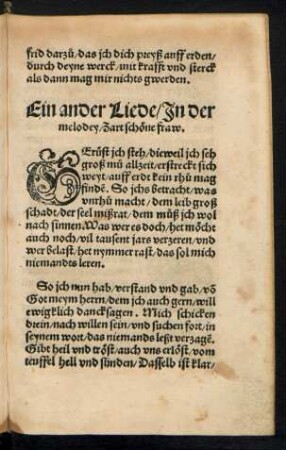 frid darzů / das jch dich preyß auff erden /
durch deyne werck / mit krafft vnd sterck
als dann mag mir nichts gwerden.
Ein ander Liede / Jn der
melodey / Zart schöne fraw.
GErüst jch steh / dieweil jch seh
groß mü allzeit / erstreckt sich
weyt / auff erdt kein rhů mag
findē. So jchs betracht / was
vnrhů macht / dem leib groß
schadt / der seel mißrat / dem můß jch wol
nach sinnen. Was wer es doch / het möcht
auch noch / vil tausent jars verzeren / vnd
wer belast / het nymmer rast / das sol mich
niemandts leren.
So jch nun hab / verstand vnd gab / vō
Got meym herrn / dem jch auch gern / will
ewigklich dancksagen. Mich schicken
drein / nach willen sein / vnd suchen fort / in
seynem wort / das niemands leßt verzagē.
Gibt heil vnd tröst / auch vns erlöst / vom
teuffel hell vnd sünden / Dasselb ist klar /